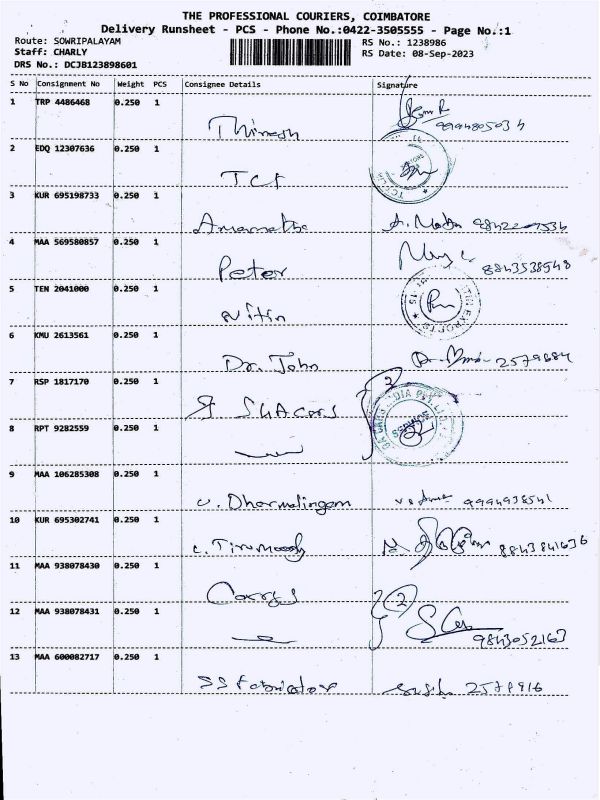 THE PROFESSIONAL COURIERS, COIMBATORE
Delivery Runsheet - PCS - Phone No.:0422-3505555 - Page No.:1
Route: SOWRIPALAYAM
Staff: CHARLY
DRS No.: DCJB123898601
RS No.: 1238986
RS Date: 08-Sep-2023
S No Consignment No Weight PCS Consignee Details Signature
1 TRP 4486468 0.250 1
Thinesh
2 EDQ 12307636 0.250 1
TCF
3 KUR 695198733 0.250 1
4 MAA 569580857 0.250 1
Peter 8843538548
5 TEN 2041000 0.250 1
Nitin
6 KMU 2613561 0.250 1
Dr. John 2579884
7 RSP 1817170 0.250 1
8 RPT 9282559 0.250 1
9 MAA 106285308 0.250 1
v. Dharmalingam 9994938541
10 KUR 695302741 0.250 1
8843841636
11 MAA 938078430 0.250 1
12 MAA 938078431 0.250 1
9843052163
13 MAA 600082717 0.250 1
SS Fabricator